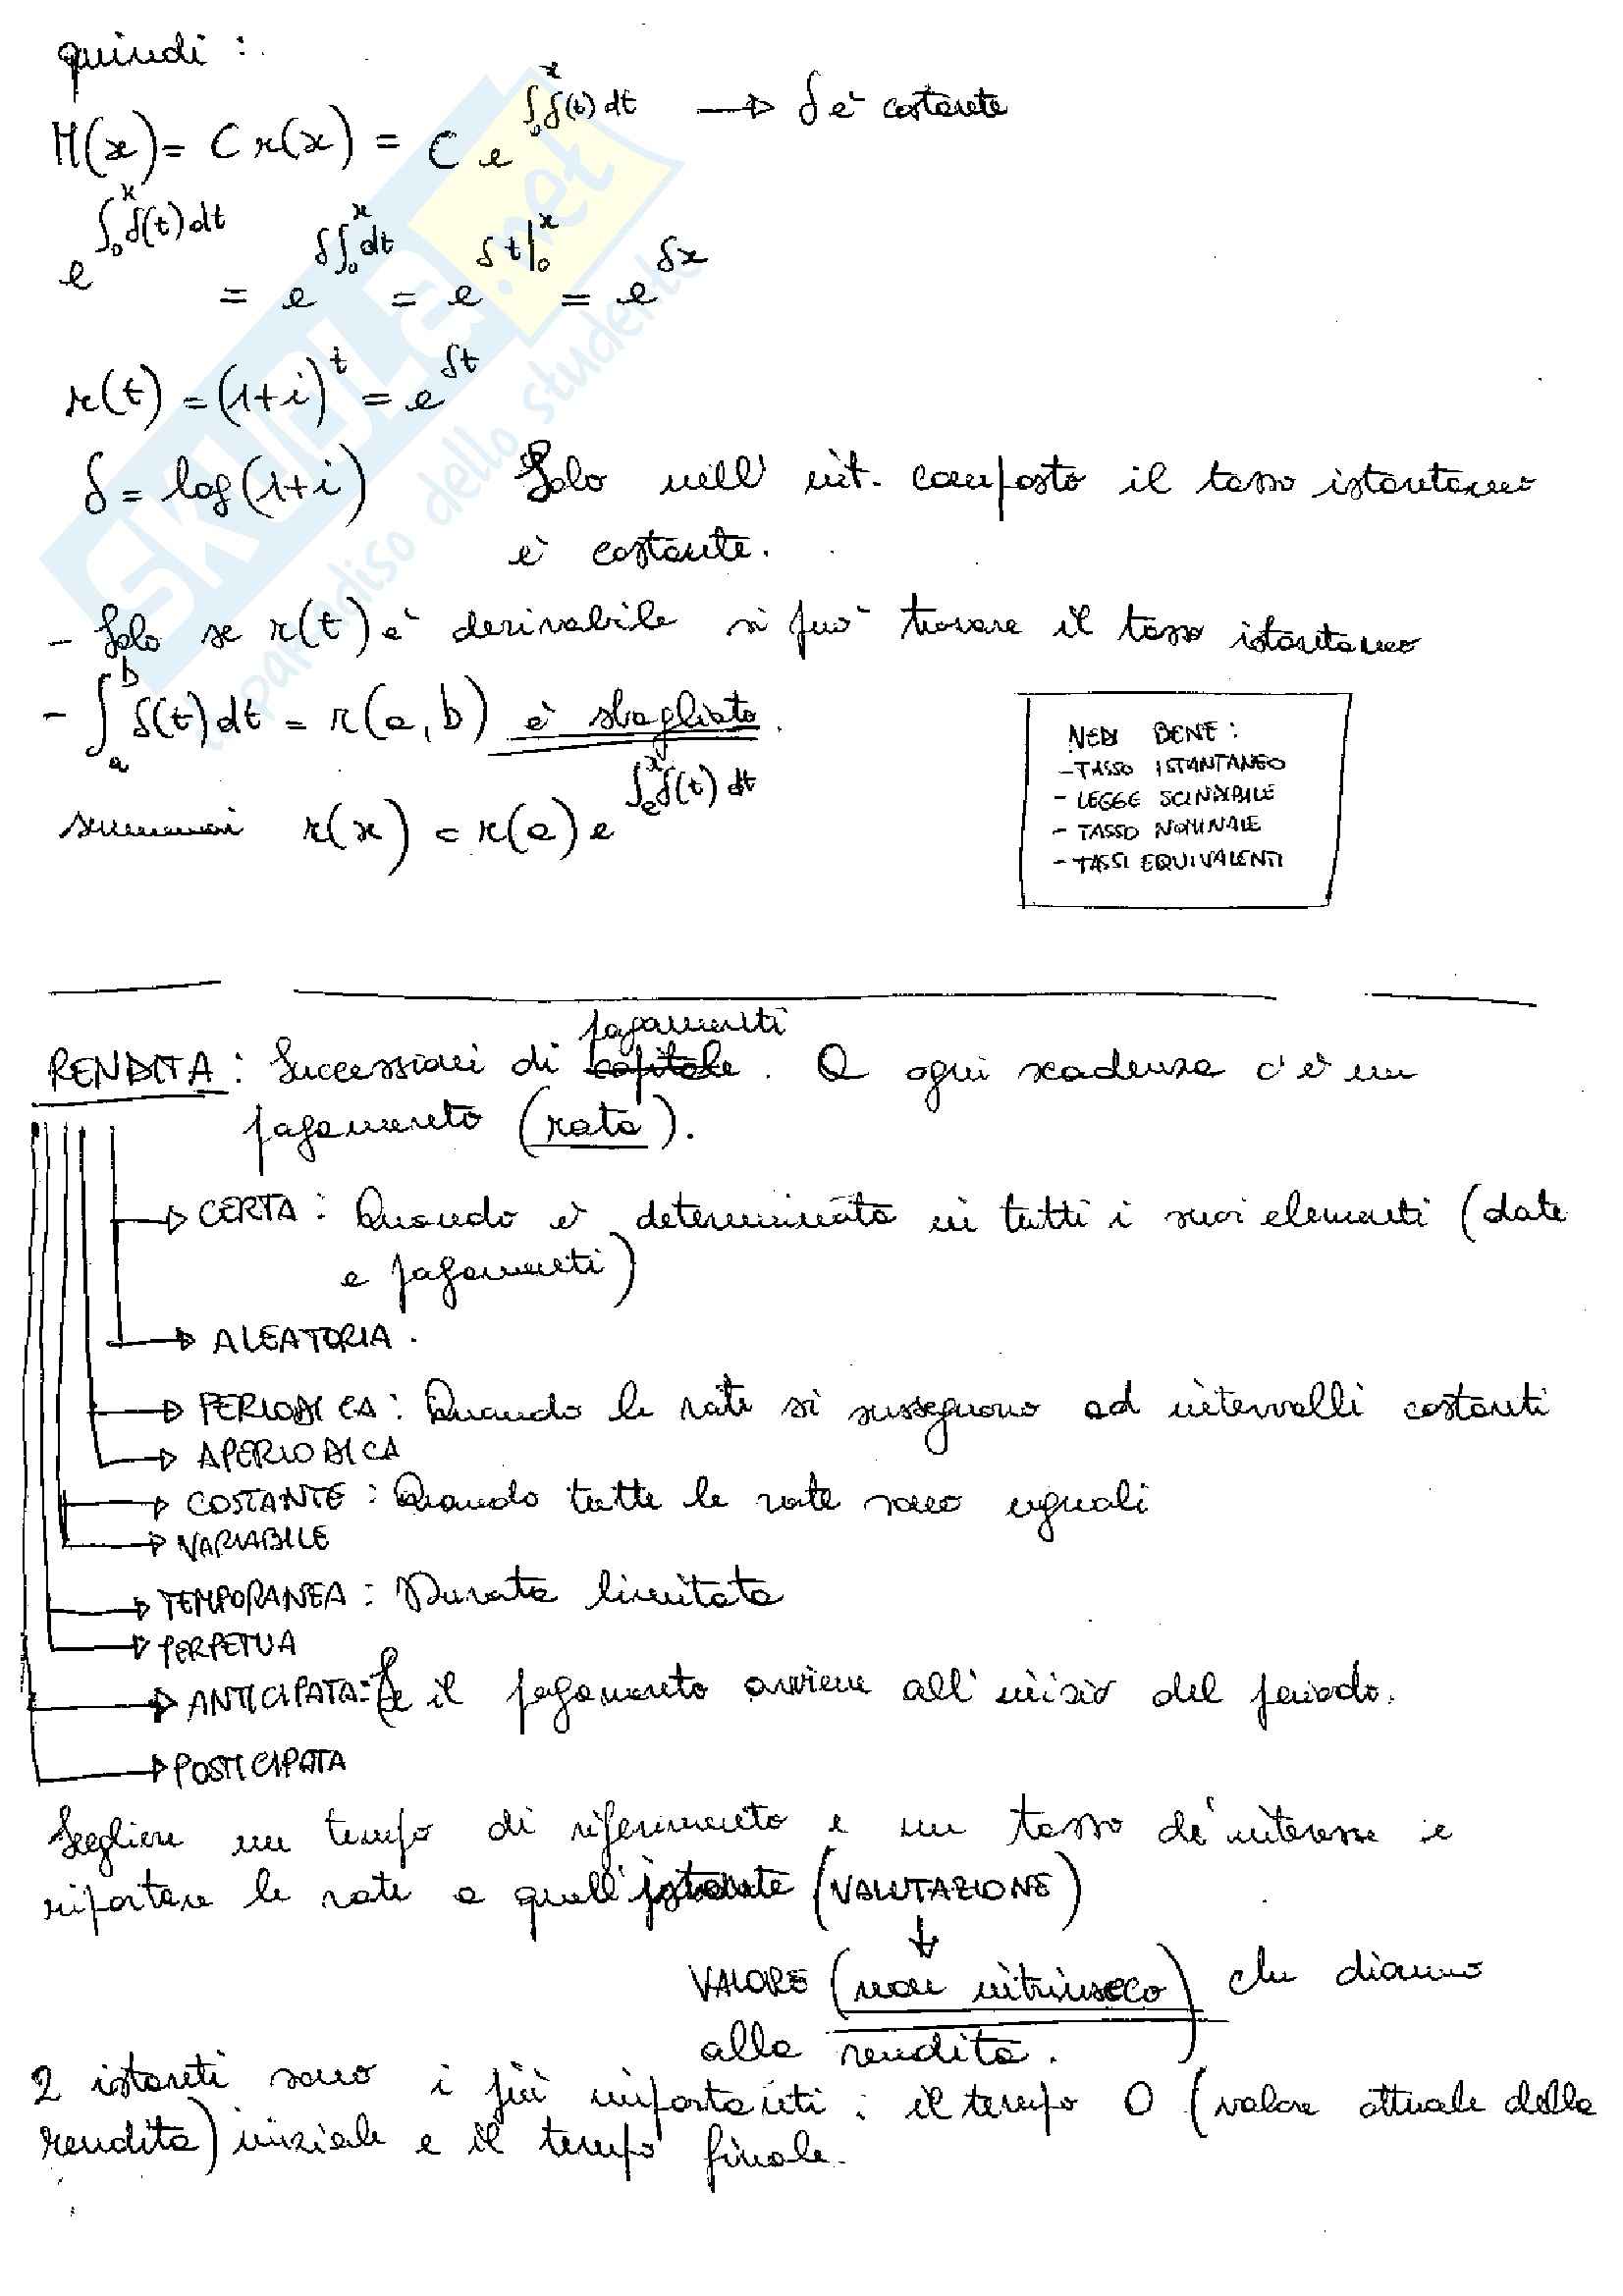 quindi :
M(x) = C r(x) = C e^{∫_0^x δ(t) dt} → δ è costante
e^{∫_0^x δ(t) dt} = e^{δ∫_0^x dt} = e^{δ t|_0^x} = e^{δx}
r(t) = (1+i)^t = e^{δt}
δ = log(1+i) Solo nell' int. composto il tasso istantaneo
è costante.
- Solo se r(t) è derivabile si può trovare il tasso istantaneo
- ∫_a^b δ(t) dt = r(a,b) è sbagliato.
semmai r(x) = r(a) e^{∫_a^x δ(t) dt}
VEDI BENE :
- TASSO ISTANTANEO
- LEGGE SCINDIBILE
- TASSO NOMINALE
- TASSI EQUIVALENTI
RENDITA : Successioni di capitale pagamenti. A ogni scadenza c'è un
pagamento (rata).
→ CERTA : Quando è determinata in tutti i suoi elementi (date
e pagamenti)
→ ALEATORIA.
→ PERIODICA : Quando le rate si susseguono ad intervalli costanti
→ APERIODICA
→ COSTANTE : Quando tutte le rate sono uguali
→ VARIABILE
→ TEMPORANEA : Durata limitata
→ PERPETUA
→ ANTICIPATA : Se il pagamento avviene all' inizio del periodo.
→ POSTICIPATA
Scegliere un tempo di riferimento e un tasso di interesse e
riportare le rate a quell' istante (VALUTAZIONE)
↓
VALORE (non intrinseco) che diamo
alla rendita.
2 istanti sono i più importanti : il tempo 0 (valore attuale della
rendita) iniziale e il tempo finale.
SKUOLA.net
il paradiso dello studente